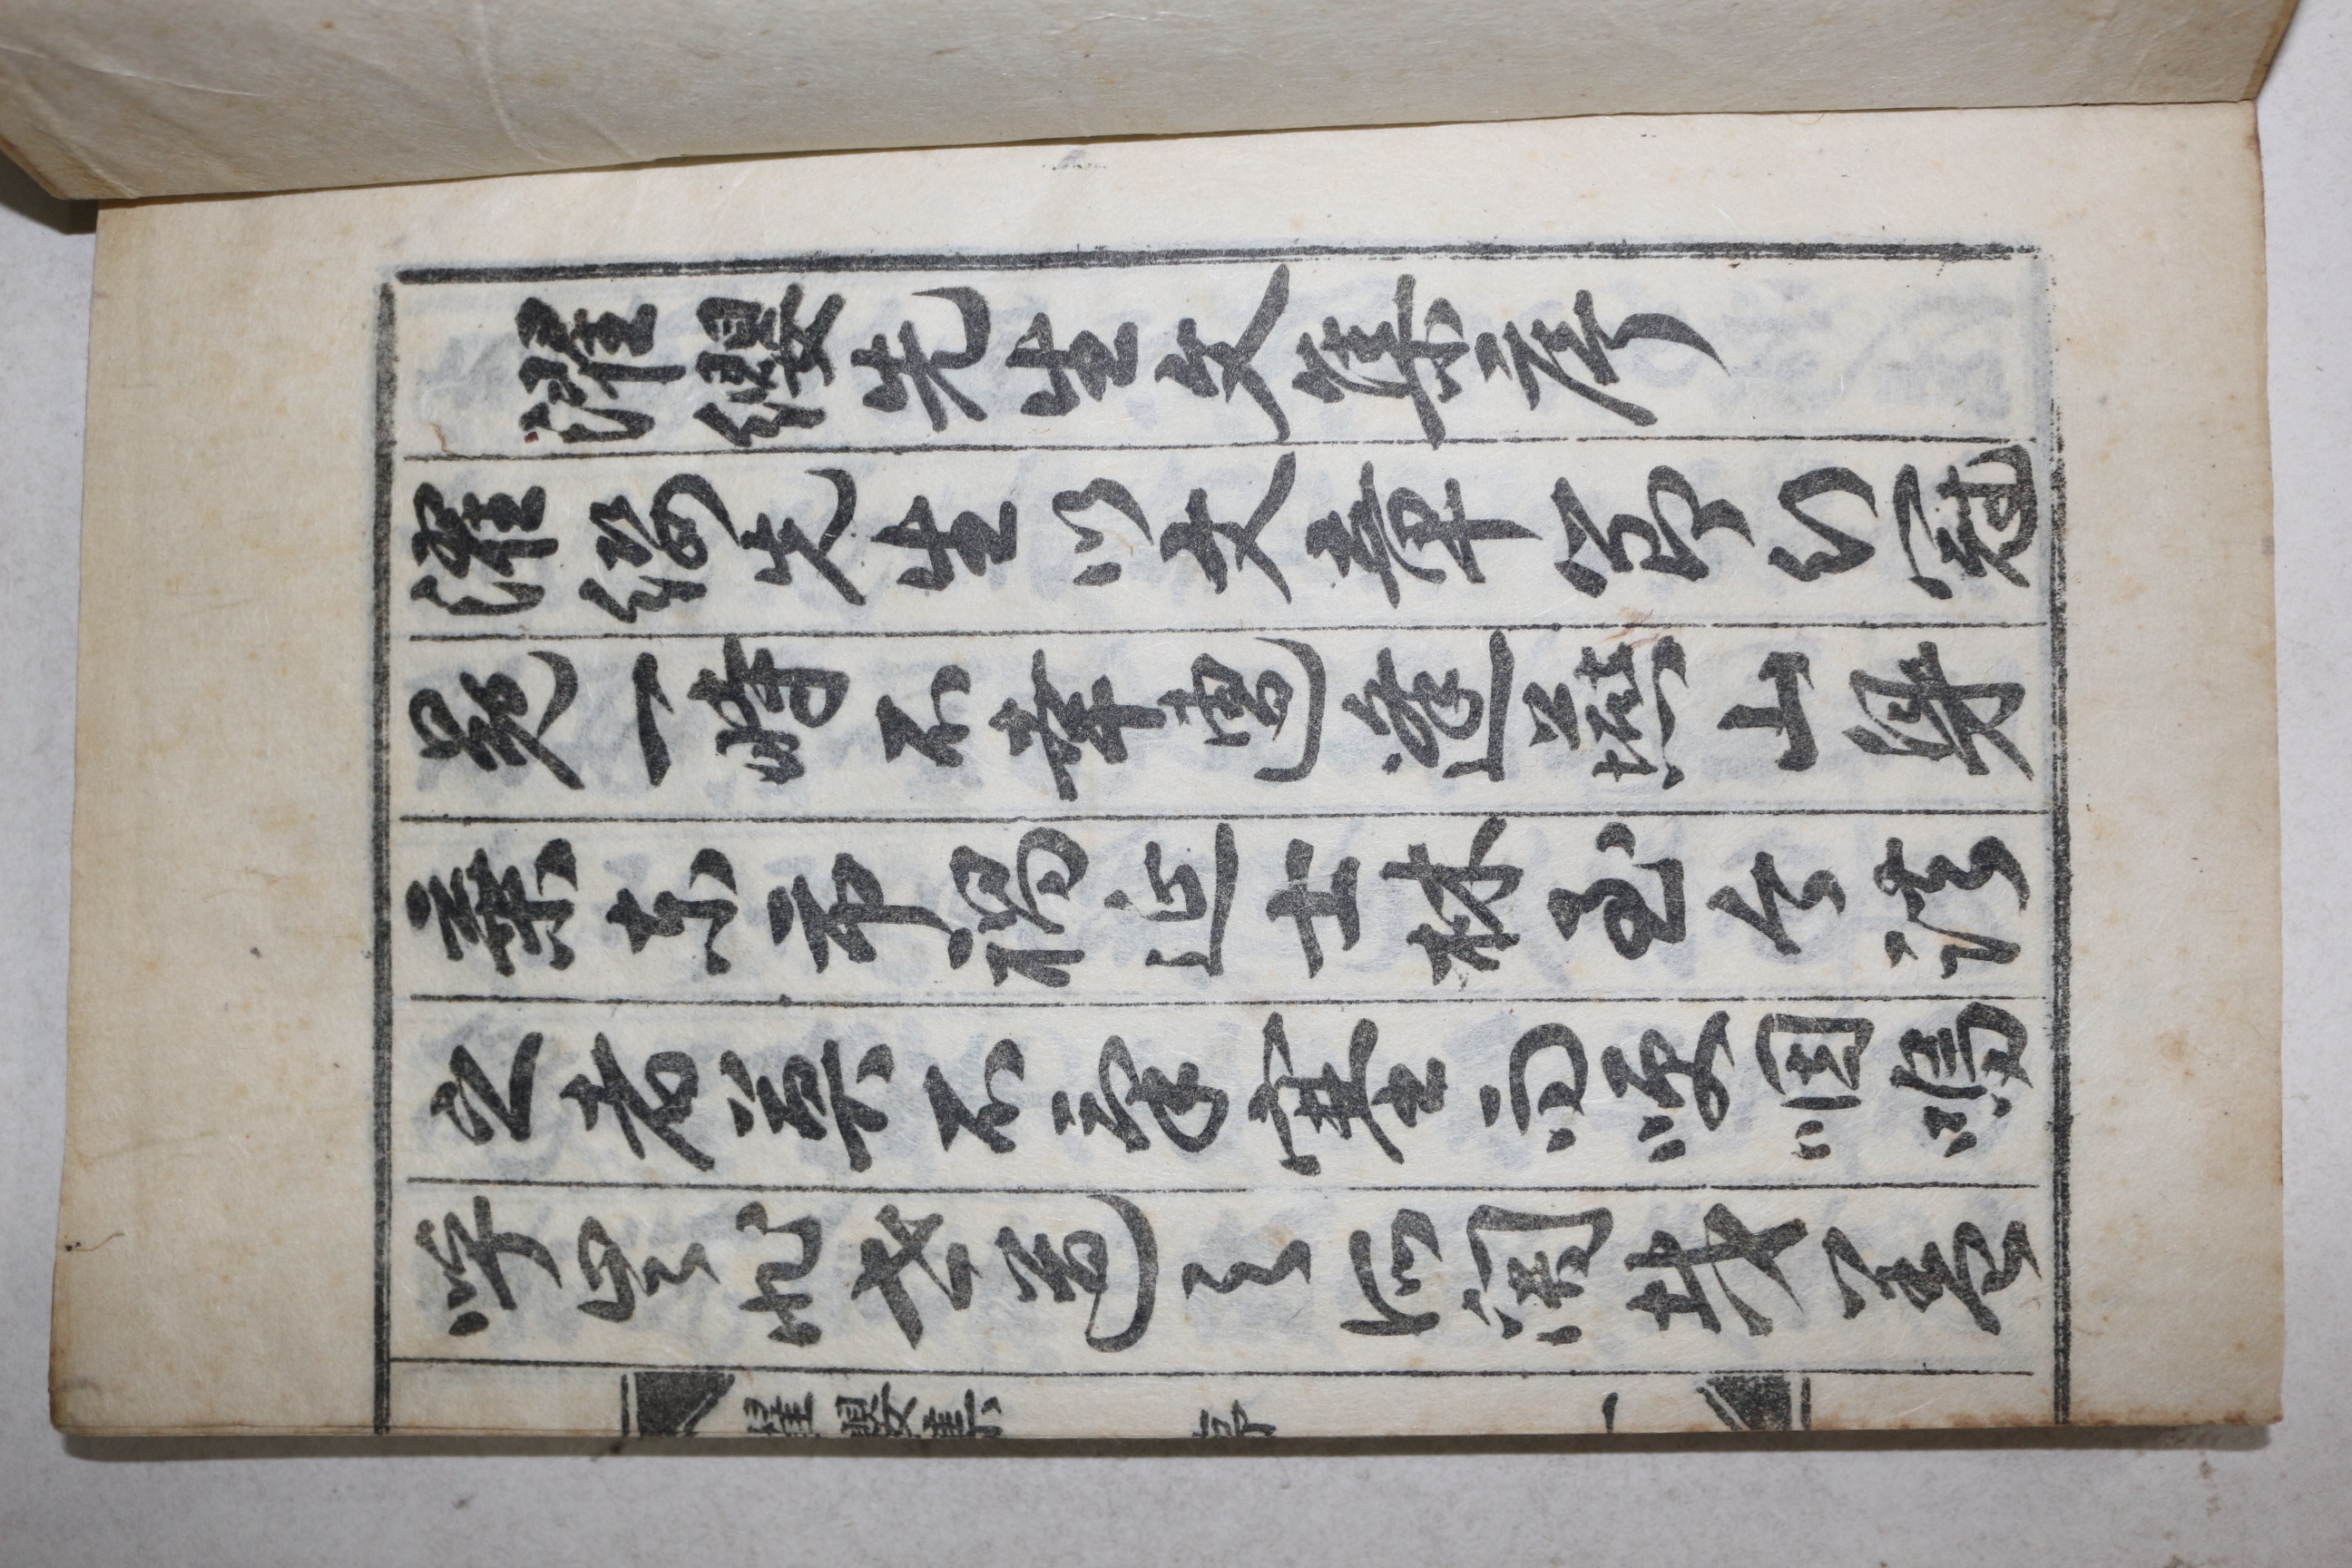 濯纓先生文集序
濯纓先生以文章節行冠
冕一時不幸遭逢燕山身
棄東市禍延士林至今談
之者莫不氣塞而哽咽嗚
呼豈非世道之所關哉盖
濯纓集 序 一